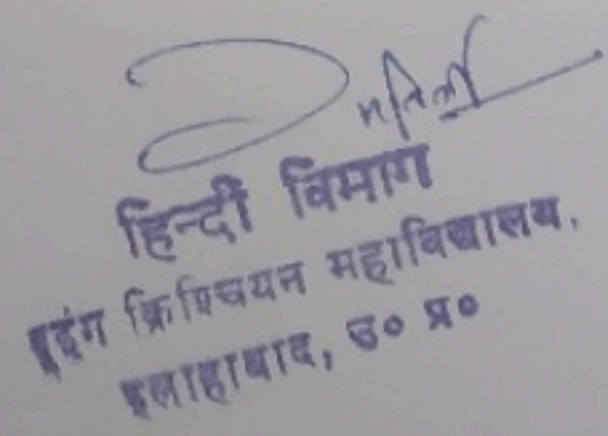 हिन्दी विभाग
इविंग क्रिश्चियन महाविद्यालय,
इलाहाबाद, उ० प्र०